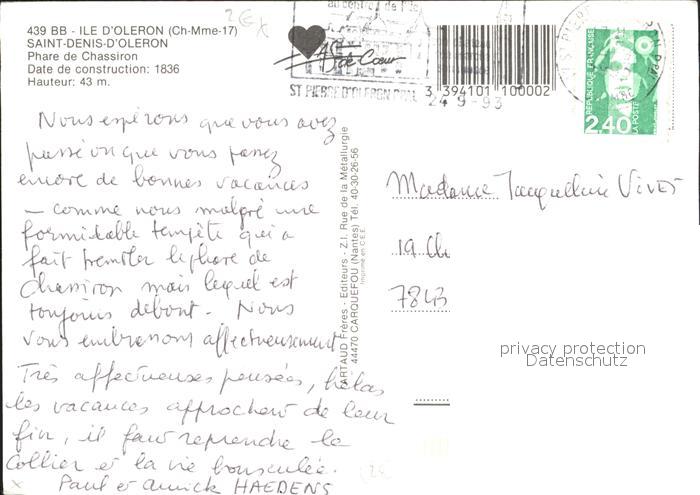 439 BB - ILE D'OLERON (Ch-Mme-17)
SAINT-DENIS-D'OLERON
Phare de Chassiron
Date de construction: 1836
Hauteur: 43 m.
2€
au centre de l'île
As de Cœur
ST PIERRE D'OLERON PPAL
24-9-93
3 394101 100002
REPUBLIQUE FRANÇAISE
2,40
LA POSTE
Nous espérons que vous avez
passé ou que vous passez
encore de bonnes vacances
- comme nous malgré une
formidable tempête qui a
fait trembler le phare de
Chassiron mais lequel est
toujours debout. Nous
vous embrassons affectueusement
Très affectueuses pensées, hélas
les vacances approchent de leur
fin, il faut reprendre le
collier et la vie bousculée.
Paul et Annick HAEDENS
ARTAUD Frères - Editeurs - Z.I. Rue de la Métallurgie
44470 CARQUEFOU (Nantes) Tél. 40-30-26-56
Imprimé en C.E.E.
Madame Jacqueline Vivet
19 Ch
7843
privacy protection
Datenschutz